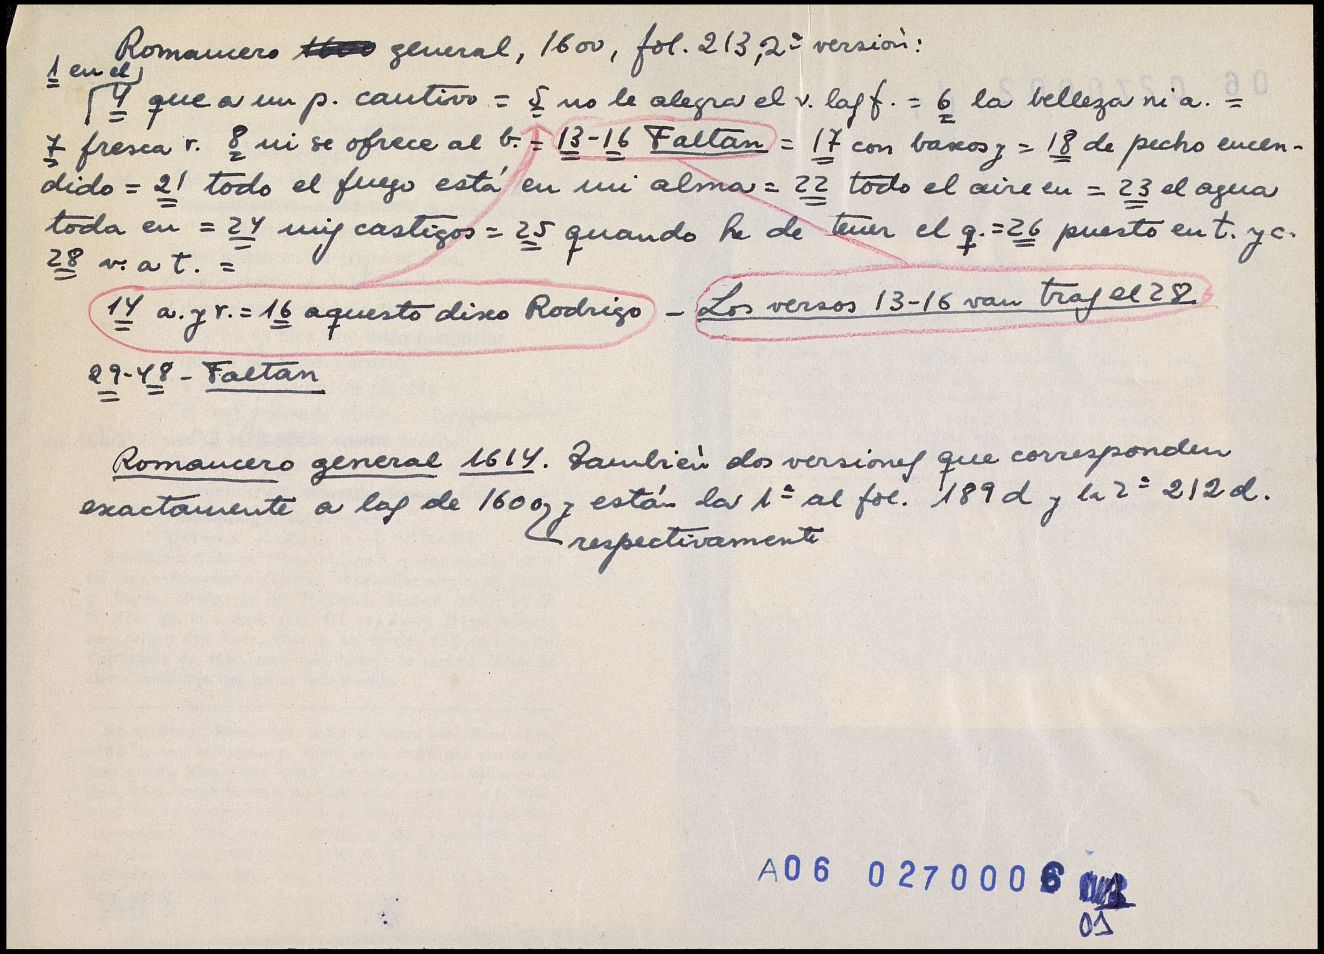 Romancero general, 1600, fol. 213, 2ª version:
1 en el
4 que a un p. cautivo = 5 no le alegra el v. las f. = 6 la belleza ni a. =
7 fresca r. 8 ni se ofrece al b. = 13-16 Faltan = 17 con baxos y = 18 de pecho encen-
dido = 21 todo el fuego está en mi alma = 22 todo el aire en = 23 el agua
toda en = 24 mis castigos = 25 quando he de tener el q. = 26 puesto en t. y c.
28 v. a t. =
14 a. y r. = 16 aquesto dixo Rodrigo - Los versos 13-16 van tras el 28
29-48 - Faltan
Romancero general 1614. También dos versiones que corresponden
exactamente a las de 1600 y están la 1ª al fol. 189 d y la 2ª 212 d.
respectivamente
A06 0270006
01